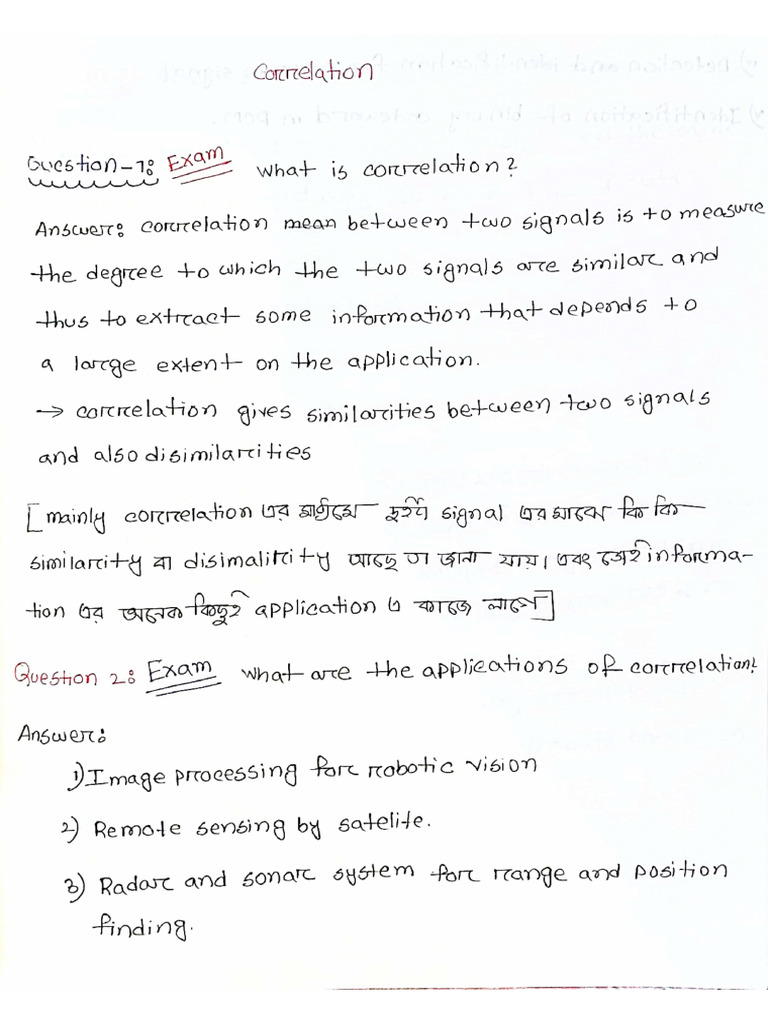 Correlation
Question-1: Exam What is correlation?
Answer: correlation mean between two signals is to measure
the degree to which the two signals are similar and
thus to extract some information that depends to
a large extent on the application.
→ correlation gives similarities between two signals
and also disimilarities
[mainly correlation এর মাধ্যমে দুইটা signal এর মাঝে কি কি
similarity বা disimalirity আছে তা জানা যায়। এবং সেই informa-
tion এর অনেক কিছুই application এ কাজে লাগে]
Question 2: Exam What are the applications of correlation?
Answer:
1) Image processing for robotic vision
2) Remote sensing by satelite.
3) Radar and sonar system for range and position
finding.